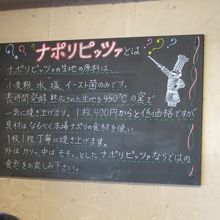 ナポリピッツァとは
ナポリピッツァの生地の原料は、
小麦粉、水、塩、イースト菌のみです。
長時間発酵、熟成された生地を450℃の窯で
一気に焼き上げます。1枚400円からと低価格ですが
具材はなるべく本場ナポリの食材を使い
1枚1枚丁寧に焼き上げます。
外はカリッ、中はモチッとしたナポリピッツァならではの
食感をお楽しみ下さい。